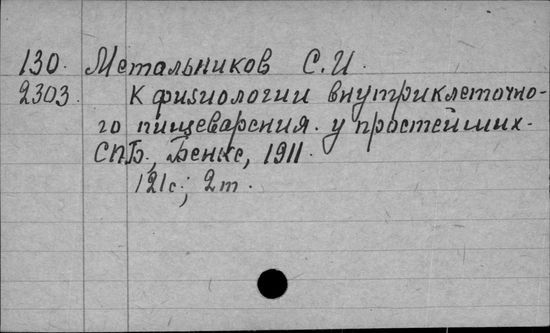 130. Метальников С.И.
2303. К физиологии внутриклеточно-
го пищеварения у простейших.
СПБ., Бенке, 1911.
121с.; 2т.